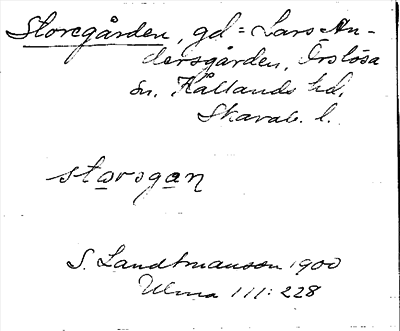 Storegården, gd = Lars An-
dersgården, Örslösa
sn. Kållands hd.
Skarab. l.
storsgan
S. Landtmanson 1900
Ulma 111:228